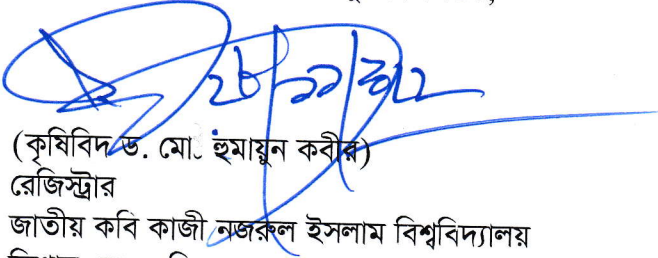 (কৃষিবিদ ড. মো. হুমায়ুন কবীর)
রেজিস্ট্রার
জাতীয় কবি কাজী নজরুল ইসলাম বিশ্ববিদ্যালয়